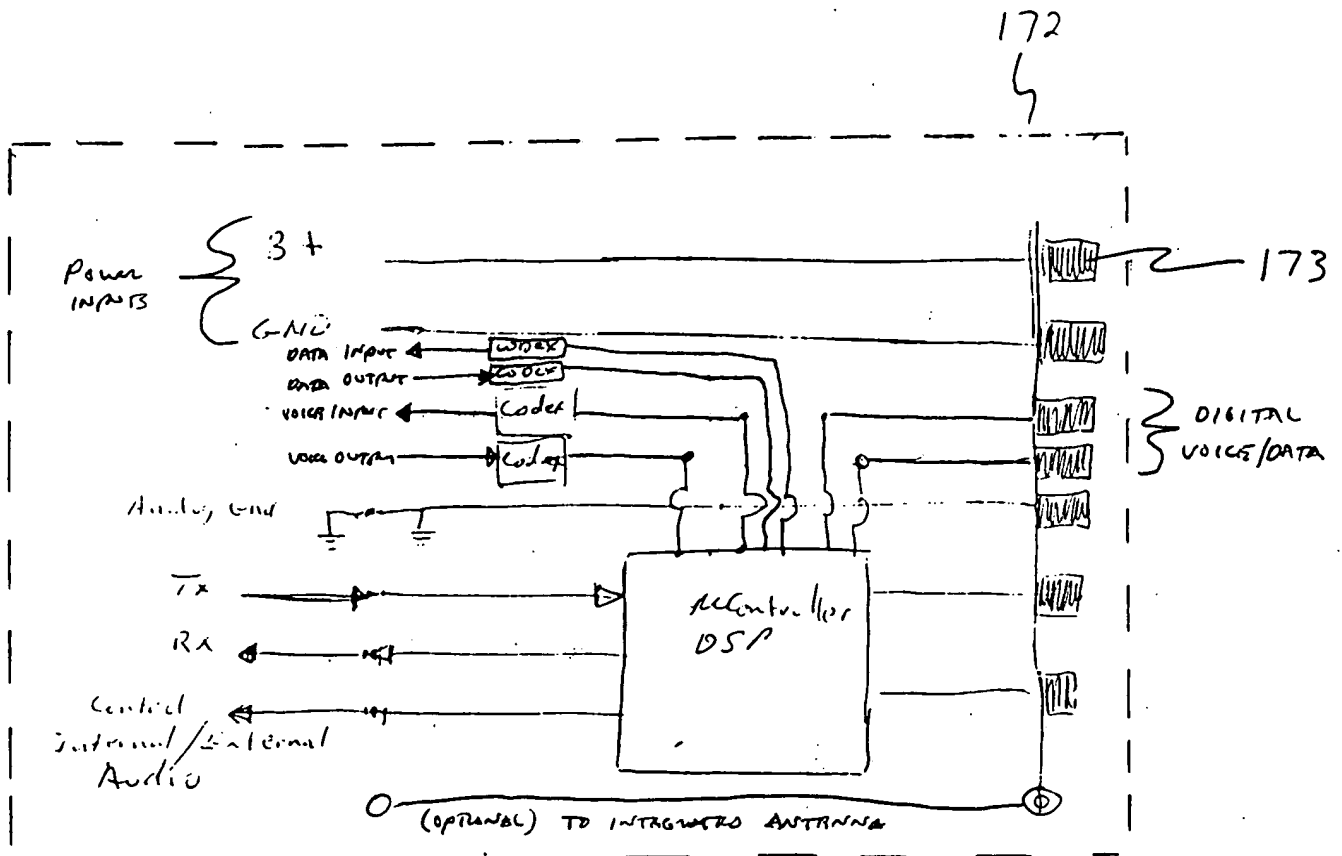 172
Power
INPUTS
B+
173
GND
DATA INPUT
CODEX
DATA OUTPUT
CODEX
VOICE INPUT
Codex
VOICE OUTPUT
Codex
DIGITAL
VOICE/DATA
Analog Gnd
Tx
µController
DSP
Rx
Control
Internal/External
Audio
(OPTIONAL) TO INTEGRATED ANTENNA